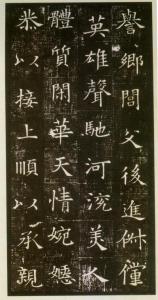 譽鄉閭父後進儕僮
英雄聲馳河㳅美人
體質閑華天情婉嬺
恭以接上順以承親